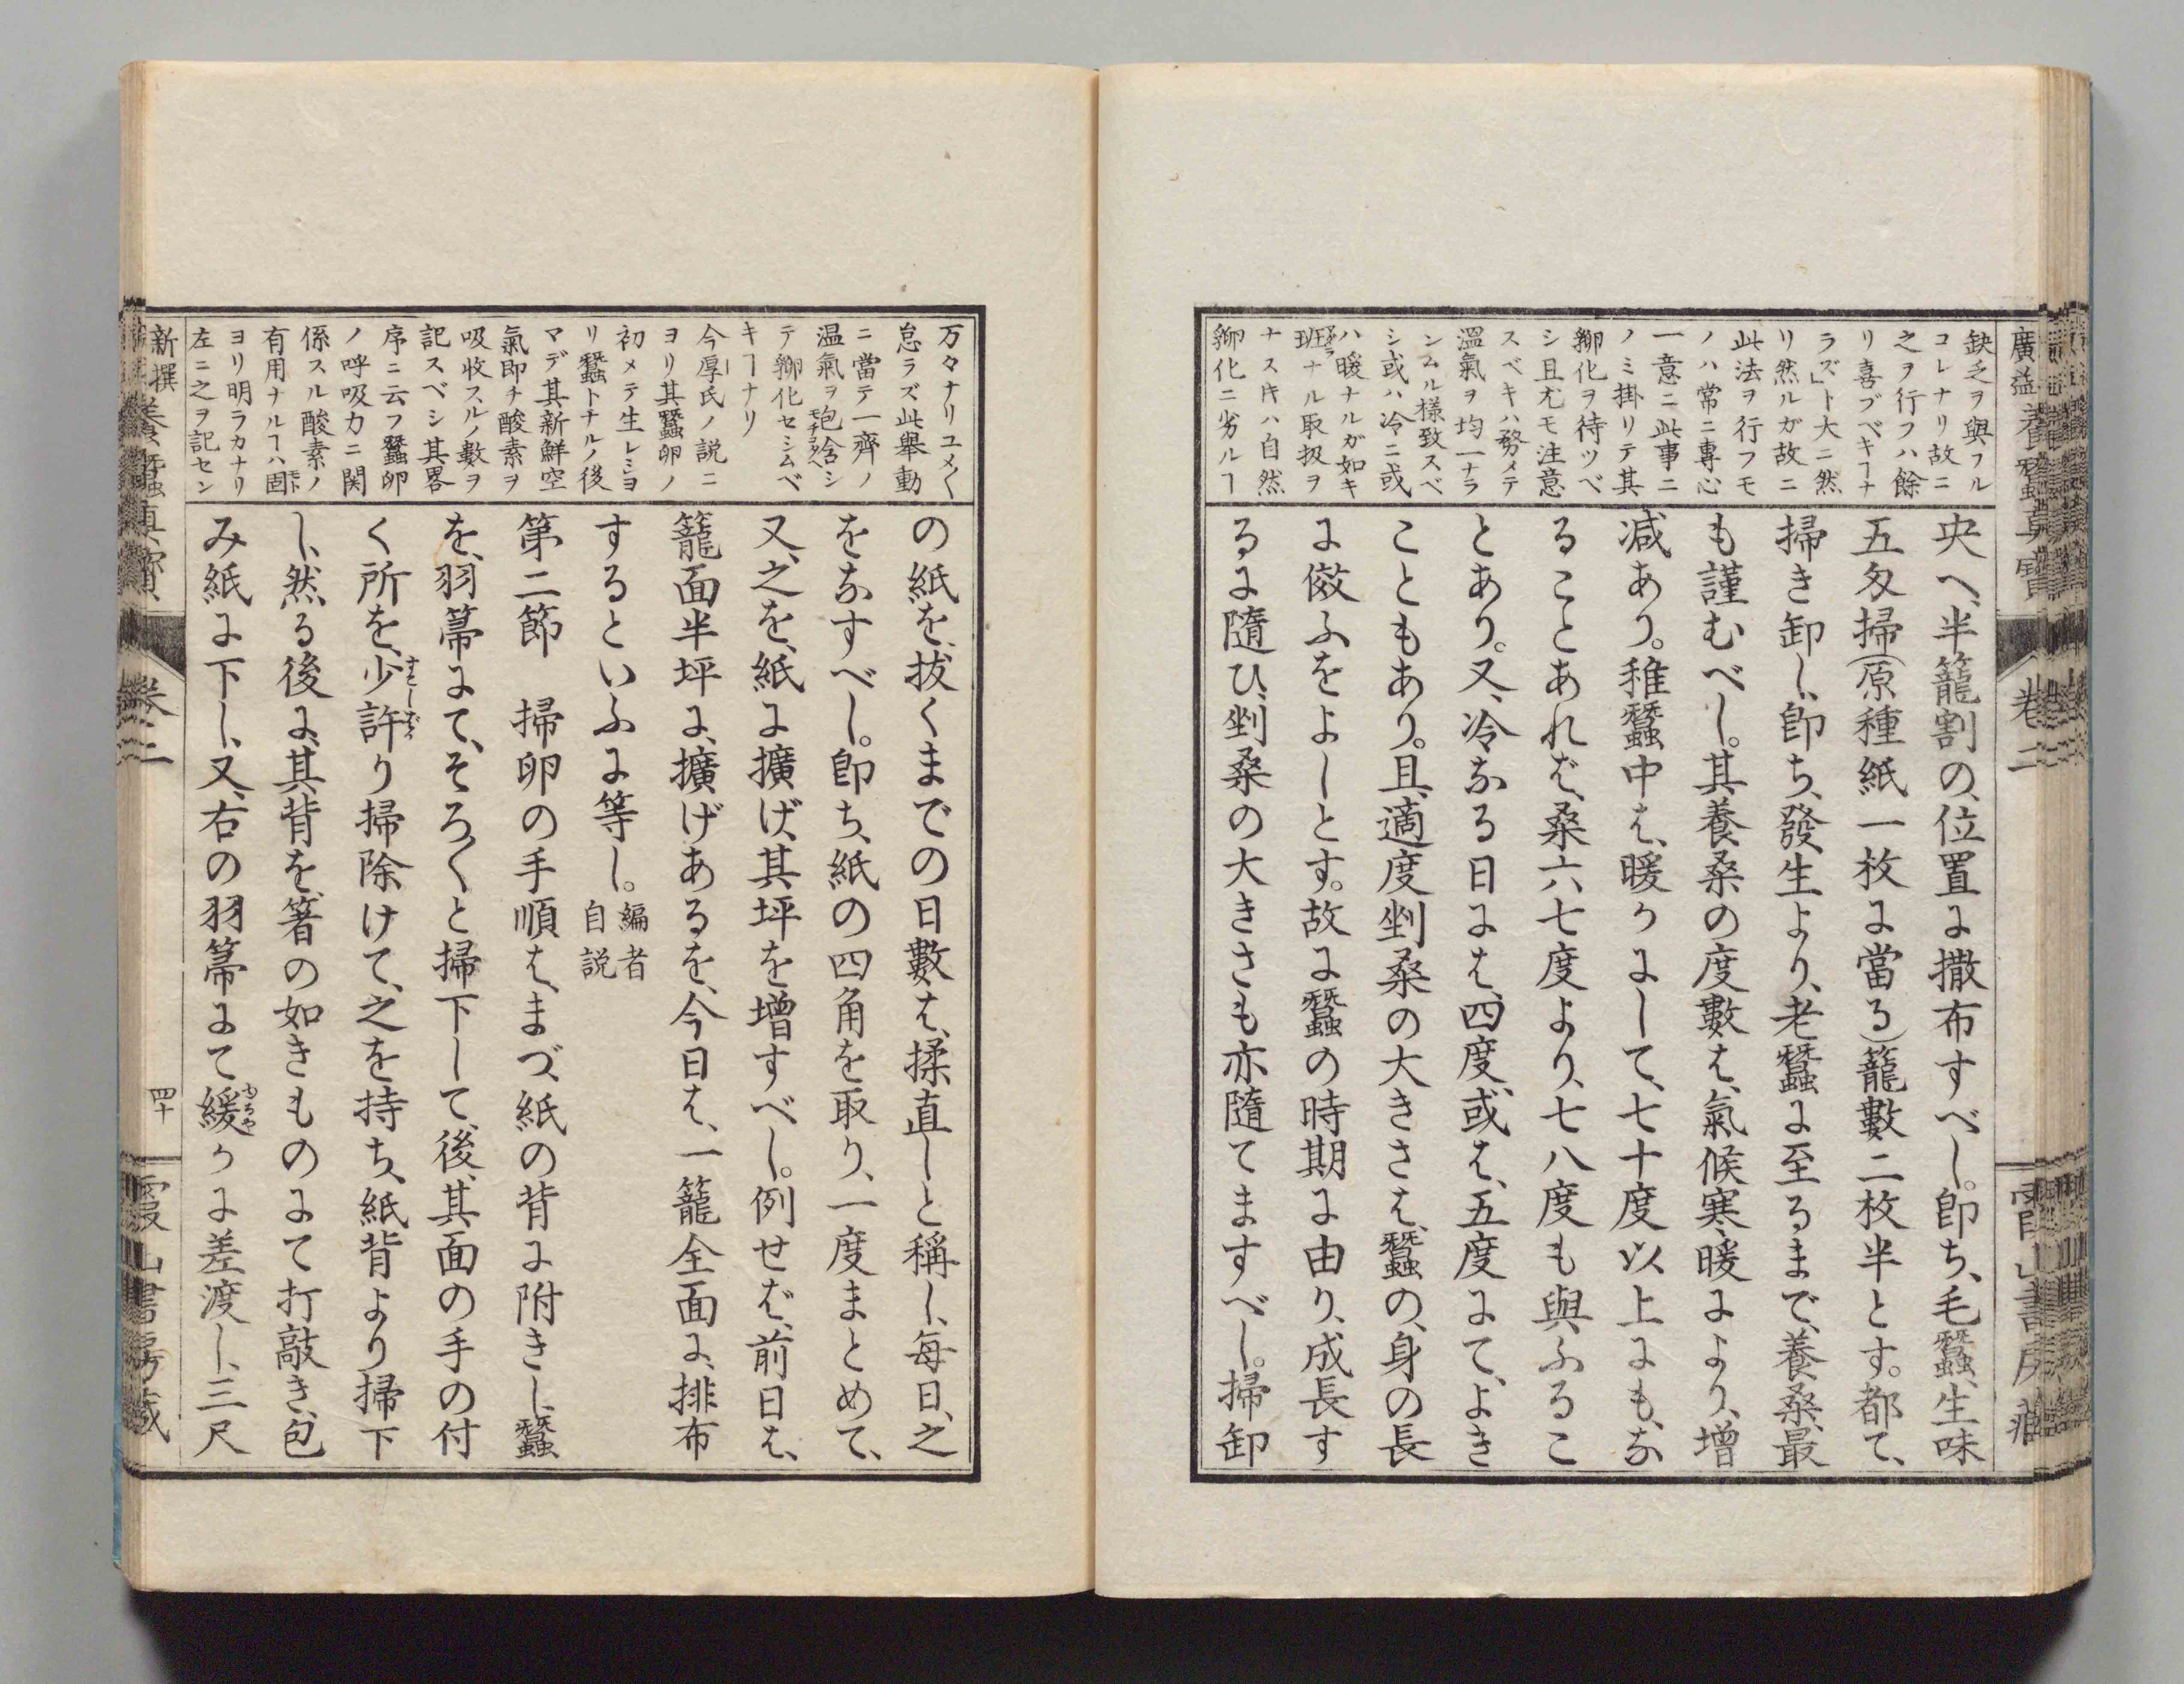 廣益養蠶眞寶
卷二
霞山書房藏
缺乏ヲ與フル
コレナリ故ニ
之ヲ行フハ餘
リ喜ブベキヿナ
ラズ」ト大ニ然
リ然ルガ故ニ
此法ヲ行フモ
ノハ常ニ專心
一意ニ此事ニ
ノミ掛リテ其
孵化ヲ待ツベ
シ且尤モ注意
スベキハ務メテ
溫氣ヲ均一ナラ
ンムル樣致スベ
シ或ハ冷ニ或
ハ暖ナルガ如キ
班ナル取扱ヲ
ナス𪜈ハ自然
孵化ニ劣ルヿ
央へ、半籠割の、位置に撒布すべし。卽ち、毛蠶、生味
五匁掃(原種紙一枚に當る)籠數二枚半とす。都て、
掃き卸し、卽ち、發生より、老蠶に至るまで、養桑、最
も謹むべし。其養桑の度數は、氣候寒暖により、増
減あり。稚蠶中は、暖かにして、七十度以上にも、な
ることあれば、桑六七度より、七八度も與ふるこ
とあり。又、冷なる日には、四度、或は、五度にて、よき
こともあり。且、適度剉桑の大きさは、蠶の、身の長
に傚ふをよしとす。故に蠶の時期に由り、成長す
るに隨ひ、剉桑の大きさも亦隨てますべし。掃卸
万々ナリユメ〱
怠ラズ此擧動
ニ當テ一齊ノ
温氣ヲ抱含シ
テ孵化セシムベ
キヿナリ
今厚氏ノ説ニ
ヨリ其蠶卵ノ
初メテ生レシヨ
リ蠶トナルノ後
マデ其新鮮空
氣即チ酸素ヲ
吸收スルノ數ヲ
記スベシ其畧
序ニ云フ蠶卵
ノ呼吸力ニ関
係スル酸素ノ
有用ナルヿハ固
ヨリ明ラカナリ
左ニ之ヲ記セン
の紙を、拔くまでの日數は、揉直しと稱し、每日、之
をなすべし。卽ち、紙の四角を取り、一度まとめて、
又、之を、紙に擴げ、其坪を增すべし。例せば、前日は、
籠面半坪に、擴げあるを、今日は、一籠全面に、排布
するといふに等し。編者自説
第二節　掃卵の手順は、まづ、紙の背に附きし、蠶
を、羽箒にて、そろ〱と掃下して、後、其面の手の付
く所を、少許り掃除けて、之を持ち、紙背より掃下
し、然る後に、其背を、箸の如きものにて打敲き、包
み紙に下し、又、右の羽箒にて緩かに差渡し、三尺
新撰養蠶眞寶
卷二
四十
霞山書房藏